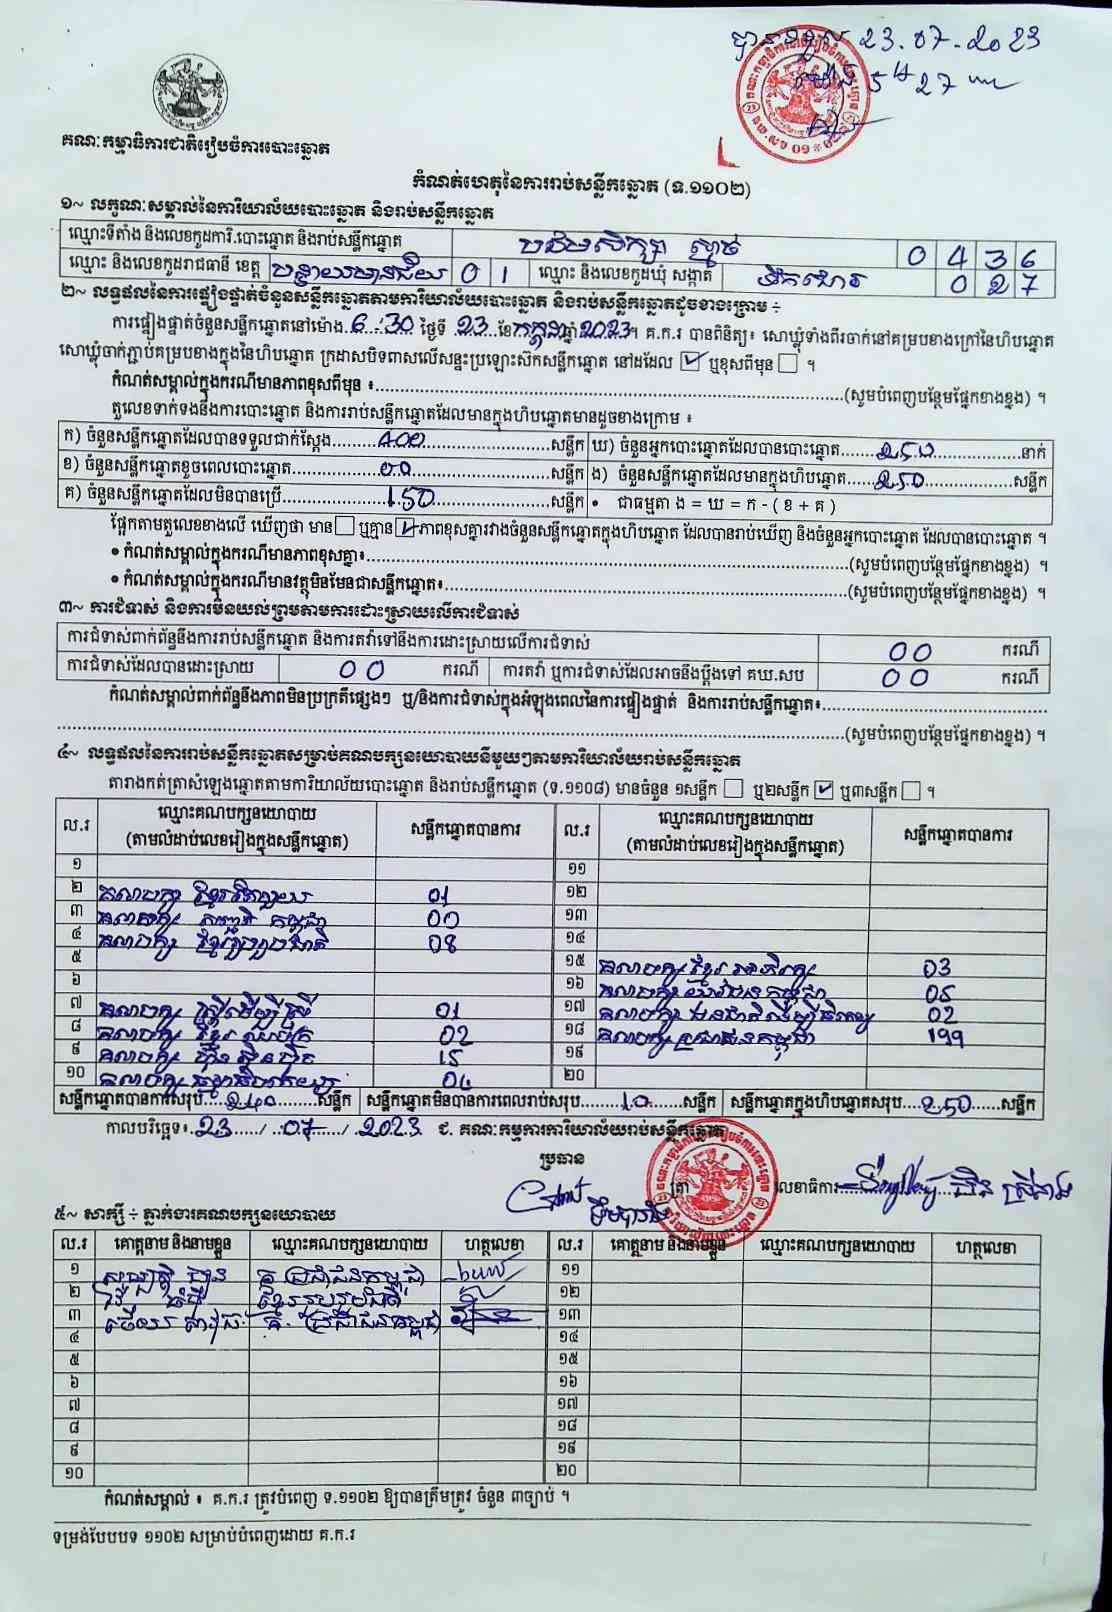 បានទទួល 23.07.2023
ម៉ោង 5 27
គណៈកម្មាធិការជាតិរៀបចំការបោះឆ្នោត
កំណត់ហេតុនៃការរាប់សន្លឹកឆ្នោត (ទ.១១០២)
១~ លក្ខណៈសម្គាល់នៃការិយាល័យបោះឆ្នោត និងរាប់សន្លឹកឆ្នោត
ឈ្មោះទីតាំង និងលេខកូដការិ.បោះឆ្នោត និងរាប់សន្លឹកឆ្នោត បឋមសិក្សា 0 4 3 6
ឈ្មោះ និងលេខកូដរាជធានី ខេត្ត បន្ទាយមានជ័យ 0 1 ឈ្មោះ និងលេខកូដឃុំ សង្កាត់ ទឹកថោរ 0 2 7
២~ លទ្ធផលនៃការផ្ទៀងផ្ទាត់ចំនួនសន្លឹកឆ្នោតតាមការិយាល័យបោះឆ្នោត និងរាប់សន្លឹកឆ្នោតដូចខាងក្រោម ÷
ការផ្ទៀងផ្ទាត់ចំនួនសន្លឹកឆ្នោតនៅម៉ោង 6:30 ថ្ងៃទី 23 ខែ កក្កដា ឆ្នាំ 2023។ គ.ក.រ បានពិនិត្យ៖ សោឃ្លុំទាំងពីរចាក់នៅគម្របខាងក្រៅនៃហិបឆ្នោត
សោឃ្លុំចាក់ភ្ជាប់គម្របខាងក្នុងនៃហិបឆ្នោត ក្រដាសបិទពាសលើសន្ទះប្រឡោះស៊កសន្លឹកឆ្នោត នៅដដែល ☑ ឬខុសពីមុន ☐ ។
កំណត់សម្គាល់ក្នុងករណីមានភាពខុសពីមុន ៖ (សូមបំពេញបន្ថែមផ្នែកខាងខ្នង) ។
តួលេខទាក់ទងនឹងការបោះឆ្នោត និងការរាប់សន្លឹកឆ្នោតដែលមានក្នុងហិបឆ្នោតមានដូចខាងក្រោម ៖
ក) ចំនួនសន្លឹកឆ្នោតដែលបានទទួលជាក់ស្តែង 400 សន្លឹក ឃ) ចំនួនអ្នកបោះឆ្នោតដែលបានបោះឆ្នោត 250 នាក់
ខ) ចំនួនសន្លឹកឆ្នោតខូចពេលបោះឆ្នោត 00 សន្លឹក ង) ចំនួនសន្លឹកឆ្នោតដែលមានក្នុងហិបឆ្នោត 250 សន្លឹក
គ) ចំនួនសន្លឹកឆ្នោតដែលមិនបានប្រើ 150 សន្លឹក • ជាធម្មតា ង = ឃ = ក - ( ខ + គ )
ផ្អែកតាមតួលេខខាងលើ ឃើញថា មាន ☐ ឬគ្មាន ☑ ភាពខុសគ្នារវាងចំនួនសន្លឹកឆ្នោតក្នុងហិបឆ្នោត ដែលបានរាប់ឃើញ និងចំនួនអ្នកបោះឆ្នោត ដែលបានបោះឆ្នោត ។
• កំណត់សម្គាល់ក្នុងករណីមានភាពខុសគ្នា៖ (សូមបំពេញបន្ថែមផ្នែកខាងខ្នង) ។
• កំណត់សម្គាល់ក្នុងករណីមានវត្ថុមិនមែនជាសន្លឹកឆ្នោត៖ (សូមបំពេញបន្ថែមផ្នែកខាងខ្នង) ។
៣~ ការជំទាស់ និងការមិនយល់ព្រមតាមការដោះស្រាយលើការជំទាស់
ការជំទាស់ពាក់ព័ន្ធនឹងការរាប់សន្លឹកឆ្នោត និងការតវ៉ាទៅនឹងការដោះស្រាយលើការជំទាស់ 00 ករណី
ការជំទាស់ដែលបានដោះស្រាយ 00 ករណី ការតវ៉ា ឬការជំទាស់ដែលអាចនឹងប្តឹងទៅ គឃ.សប 00 ករណី
កំណត់សម្គាល់ពាក់ព័ន្ធនឹងភាពមិនប្រក្រតីផ្សេងៗ ឬ/និងការជំទាស់ក្នុងអំឡុងពេលនៃការផ្ទៀងផ្ទាត់ និងការរាប់សន្លឹកឆ្នោត៖
(សូមបំពេញបន្ថែមផ្នែកខាងខ្នង) ។
៤~ លទ្ធផលនៃការរាប់សន្លឹកឆ្នោតសម្រាប់គណបក្សនយោបាយនីមួយៗតាមការិយាល័យរាប់សន្លឹកឆ្នោត
តារាងកត់ត្រាសំឡេងឆ្នោតតាមការិយាល័យបោះឆ្នោត និងរាប់សន្លឹកឆ្នោត (ទ.១១០៨) មានចំនួន ១សន្លឹក ☐ ឬ២សន្លឹក ☑ ឬ៣សន្លឹក ☐ ។
ល.រ ឈ្មោះគណបក្សនយោបាយ (តាមលំដាប់លេខរៀងក្នុងសន្លឹកឆ្នោត) សន្លឹកឆ្នោតបានការ ល.រ ឈ្មោះគណបក្សនយោបាយ (តាមលំដាប់លេខរៀងក្នុងសន្លឹកឆ្នោត) សន្លឹកឆ្នោតបានការ
១ ១១
២ គណបក្ស ខ្មែរ 01 ១២
៣ គណបក្ស កម្ពុជា 00 ១៣
៤ គណបក្ស ខ្មែររួបរួមជាតិ 08 ១៤
៥ ១៥ គណបក្ស ខ្មែរអភិរក្ស 03
៦ ១៦ គណបក្ស យុវជនកម្ពុជា 05
៧ គណបក្ស ស្ត្រីដើម្បីស្ត្រី 01 ១៧ គណបក្ស ជនជាតិដើមប្រជាធិបតេយ្យ 02
៨ គណបក្ស ខ្មែរឈប់ក្រ 02 ១៨ គណបក្ស ប្រជាជនកម្ពុជា 199
៩ គណបក្ស ហ៊្វុនស៊ិនប៉ិច 15 ១៩
១០ គណបក្ស ធម្មាធិបតេយ្យ 04 ២០
សន្លឹកឆ្នោតបានការសរុប 240 សន្លឹក សន្លឹកឆ្នោតមិនបានការពេលរាប់សរុប 10 សន្លឹក សន្លឹកឆ្នោតក្នុងហិបឆ្នោតសរុប 250 សន្លឹក
កាលបរិច្ឆេទ៖ 23 / 07 / 2023 ជ. គណៈកម្មការការិយាល័យរាប់សន្លឹកឆ្នោត
ប្រធាន ត្រា លេខាធិការ
៥~ សាក្សី ÷ ភ្នាក់ងារគណបក្សនយោបាយ
ល.រ គោត្តនាម និងនាមខ្លួន ឈ្មោះគណបក្សនយោបាយ ហត្ថលេខា ល.រ គោត្តនាម និងនាមខ្លួន ឈ្មោះគណបក្សនយោបាយ ហត្ថលេខា
១ គ ប្រជាជនកម្ពុជា ១១
២ ខ្មែររួបរួមជាតិ ១២
៣ គ. ប្រជាជនកម្ពុជា ១៣
៤ ១៤
៥ ១៥
៦ ១៦
៧ ១៧
៨ ១៨
៩ ១៩
១០ ២០
កំណត់សម្គាល់ ៖ គ.ក.រ ត្រូវបំពេញ ទ.១១០២ ឱ្យបានត្រឹមត្រូវ ចំនួន ៣ច្បាប់ ។
ទម្រង់បែបបទ ១១០២ សម្រាប់បំពេញដោយ គ.ក.រ